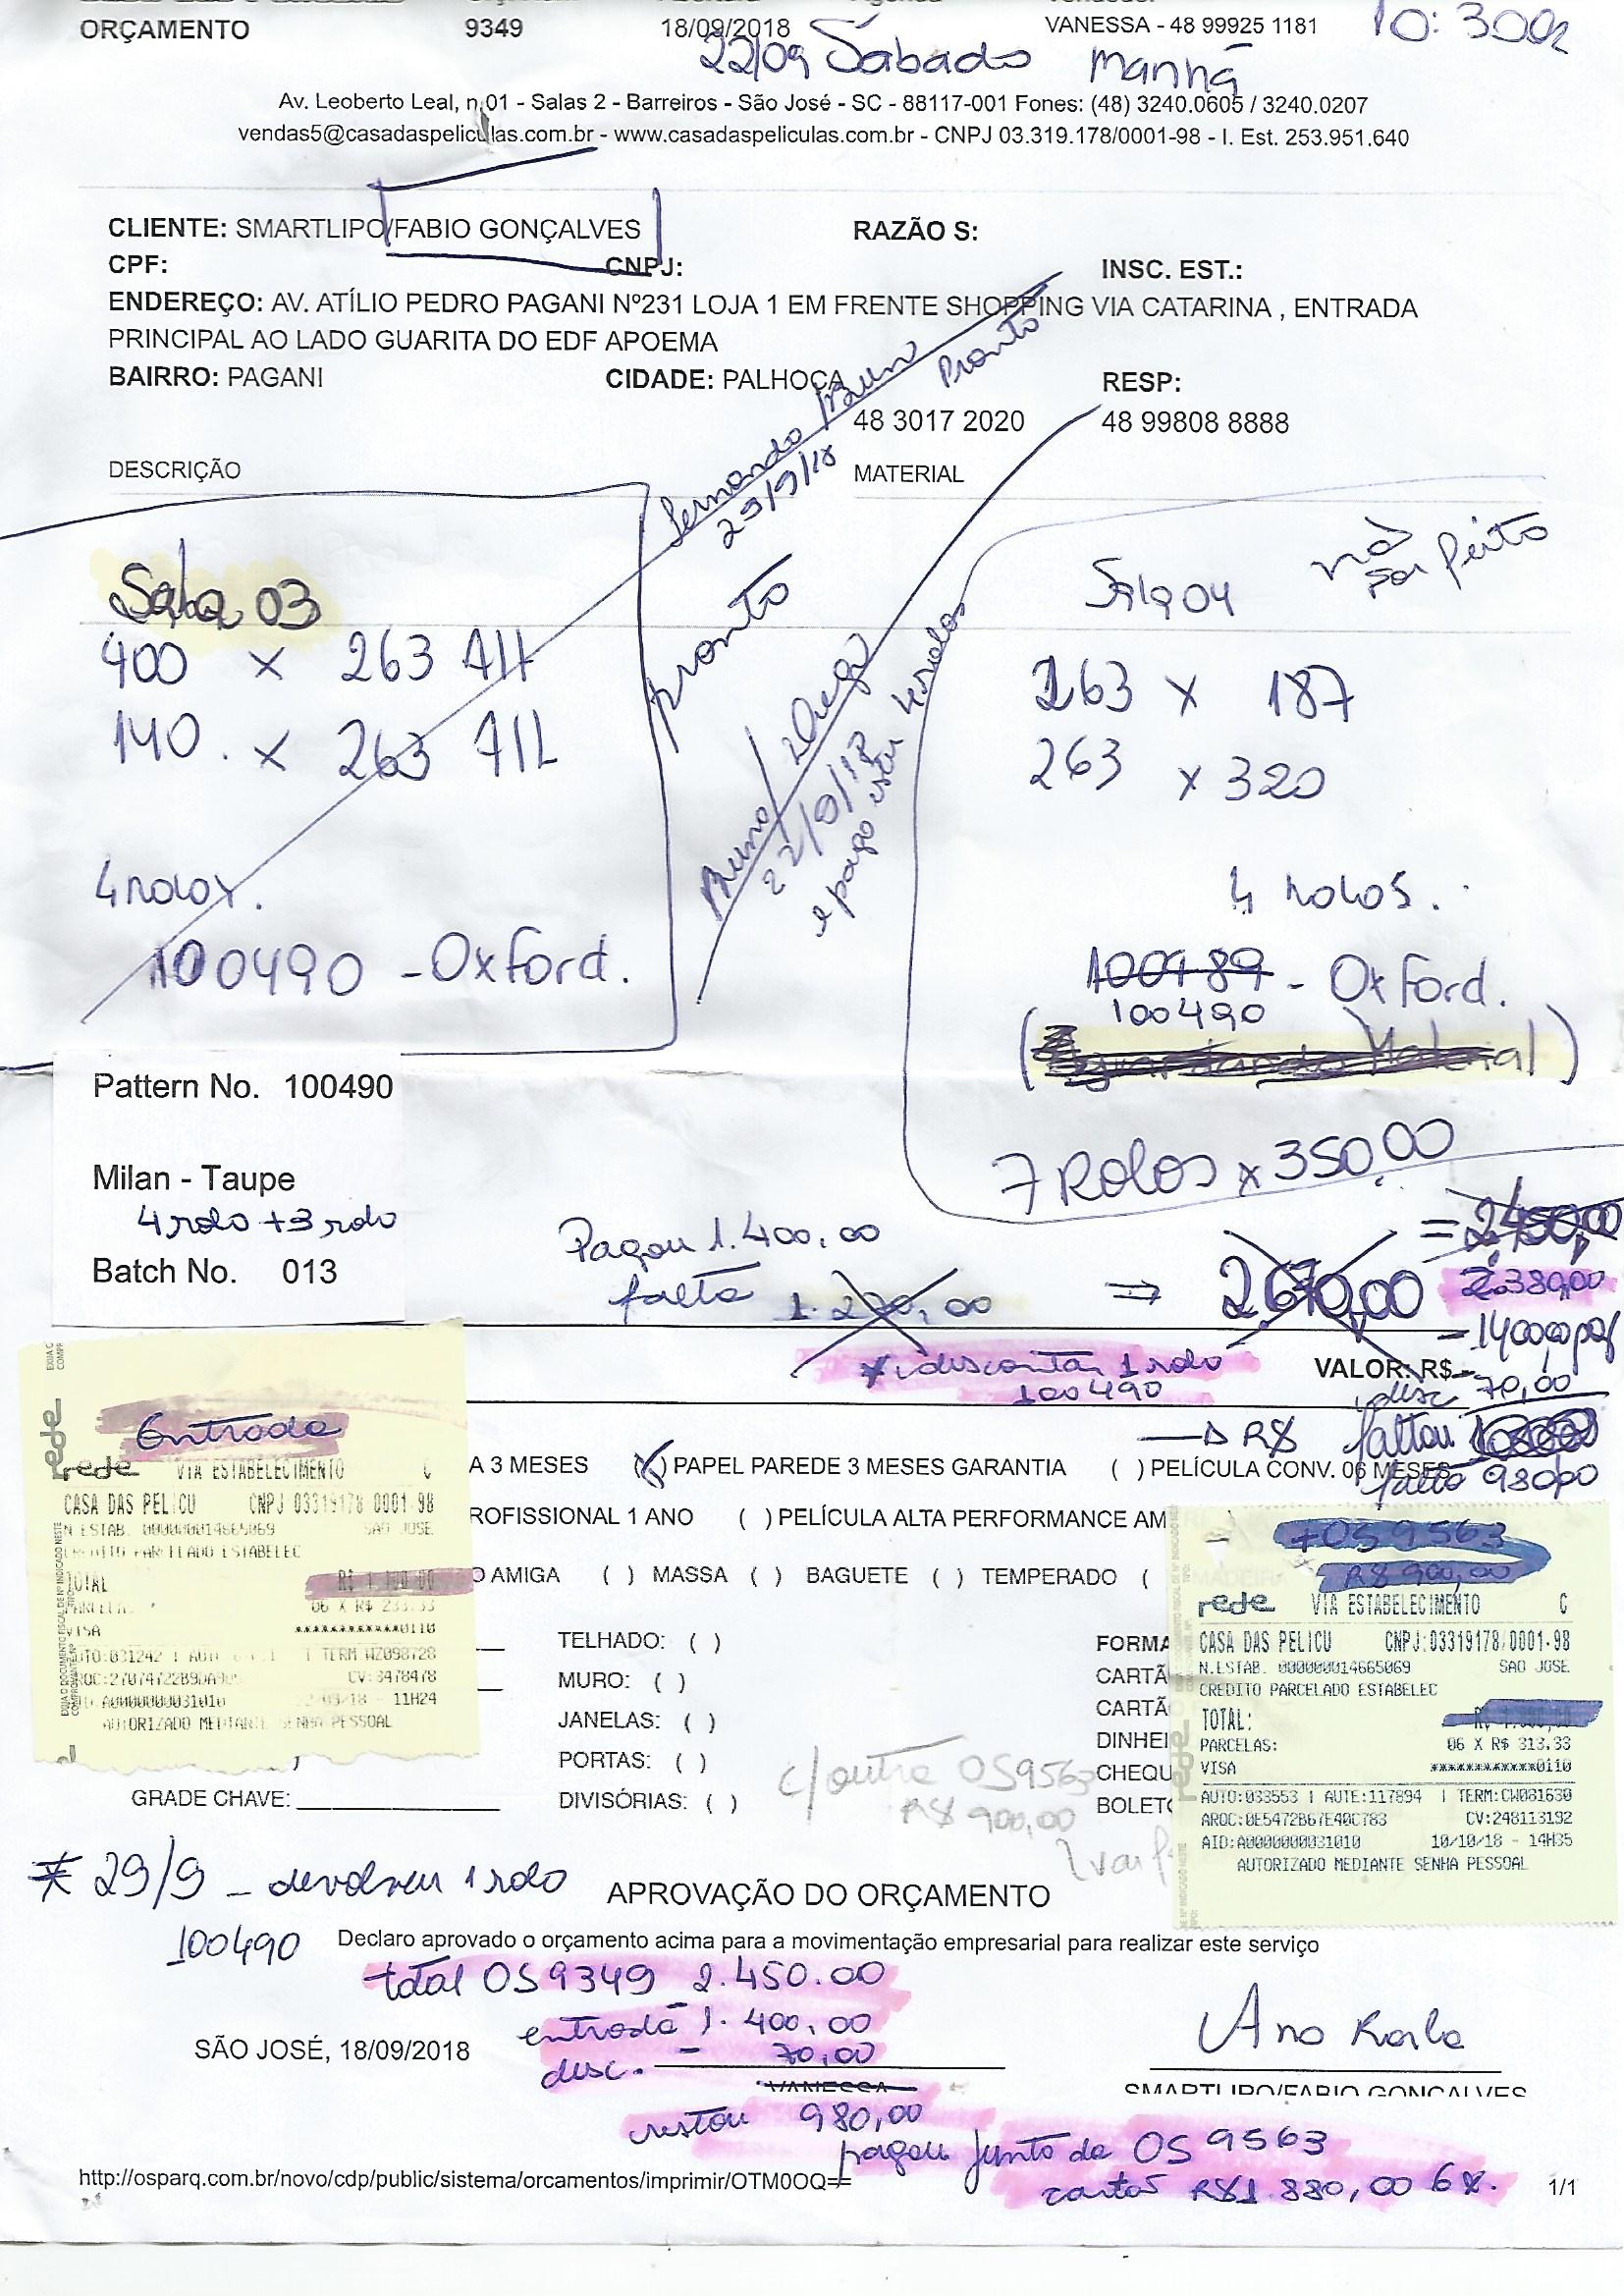 ORÇAMENTO 9349 18/09/2018 VANESSA - 48 99925 1181 10:30
22/09 Sábado Manhã
Av. Leoberto Leal, n.01 - Salas 2 - Barreiros - São José - SC - 88117-001 Fones: (48) 3240.0605 / 3240.0207
vendas5@casadaspeliculas.com.br - www.casadaspeliculas.com.br - CNPJ 03.319.178/0001-98 - I. Est. 253.951.640
CLIENTE: SMARTLIPO/FABIO GONÇALVES RAZÃO S:
CPF: CNPJ: INSC. EST.:
ENDEREÇO: AV. ATÍLIO PEDRO PAGANI Nº231 LOJA 1 EM FRENTE SHOPPING VIA CATARINA , ENTRADA
PRINCIPAL AO LADO GUARITA DO EDF APOEMA
BAIRRO: PAGANI CIDADE: PALHOÇA RESP:
48 3017 2020 48 99808 8888
DESCRIÇÃO MATERIAL
Fernando / Bruno Pronto
29/9/18
pronto
Sala 03
400 x 263 Alt
140. x 263 Alt
4 rolos.
100490 - Oxford.
Bruno /
4 rolos
Sala 04 não foi feito
263 x 187
263 x 320
4 rolos.
100489 - Oxford.
100490
(Aguardando Material)
7 Rolos x 350,00
= 2.450,00
Pattern No. 100490
Milan - Taupe
4 rolo + 3 rolo
Batch No. 013
Pagou 1.400,00
falta 1.270,00 ⇒ 2.670,00 2.380,00
- 1400,00 pg
* descontar 1 rolo VALOR: R$
100490 desc 70,00
R$ faltou
falta 980,00
A 3 MESES (X) PAPEL PAREDE 3 MESES GARANTIA ( ) PELÍCULA CONV. 06 MESES
ROFISSIONAL 1 ANO ( ) PELÍCULA ALTA PERFORMANCE AM
O AMIGA ( ) MASSA ( ) BAGUETE ( ) TEMPERADO (
Entrada
rede VIA ESTABELECIMENTO C
CASA DAS PELICU CNPJ 03319178 0001-98
N ESTAB. 000000014665069 SAO JOSE
CREDITO PARCELADO ESTABELEC
TOTAL
06 X R$ 233.33
VISA ************0110
AUTO:031242 TERM WZ098728
CV:3478478
AID:A0000000031010 /09/18 - 11H24
AUTORIZADO MEDIANTE SENHA PESSOAL
TELHADO: ( )
MURO: ( )
JANELAS: ( )
PORTAS: ( )
DIVISÓRIAS: ( )
GRADE CHAVE:
c/ outra OS9563
R$ 900,00
FORMA
CARTÃ
CARTÃ
DINHEI
CHEQU
BOLETO
+ OS 9563
R$ 900,00
rede VIA ESTABELECIMENTO C
CASA DAS PELICU CNPJ:03319178/0001-98
N.ESTAB. 000000014665069 SAO JOSE
CREDITO PARCELADO ESTABELEC
TOTAL:
PARCELAS: 06 X R$ 313.33
VISA ************0110
AUTO:033553 | AUTE:117894 | TERM:CW081630
AROC:0E5472B67E40C783 CV:248113192
AID:A0000000031010 10/10/18 - 14H35
AUTORIZADO MEDIANTE SENHA PESSOAL
* 29/9 - devolveu 1 rolo
100490
APROVAÇÃO DO ORÇAMENTO
Declaro aprovado o orçamento acima para a movimentação empresarial para realizar este serviço
total OS 9349 2.450.00
entrada 1.400,00
desc. - 70,00
SÃO JOSÉ, 18/09/2018
Ana Karla
VANESSA
SMARTLIPO/FABIO GONÇALVES
restou 980,00
pagou junto da OS 9563
cartão R$1.880,00 6x.
http://osparq.com.br/novo/cdp/public/sistema/orcamentos/imprimir/OTM0OQ== 1/1